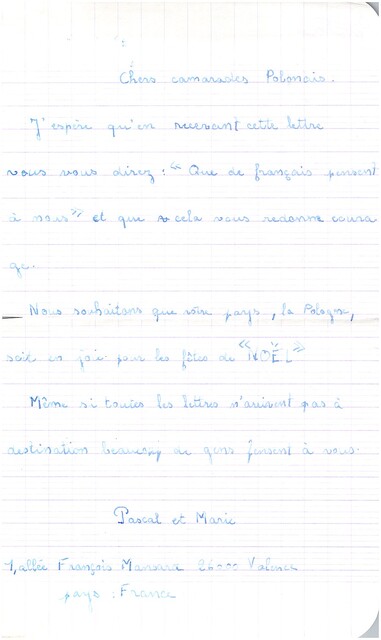 Chers camarades Polonais.
J'espère qu'en recevant cette lettre
vous vous direz : "Que de français pensent
à nous" et que cela vous redonne coura
ge.
Nous souhaitons que votre pays, la Pologne,
soit en joie pour les fêtes de "NOËL"
Même si toutes les lettres n'arrivent pas à
destination beaucoup de gens pensent à vous.
Pascal et Marie
1, allée François Mansara 26000 Valence
pays : France